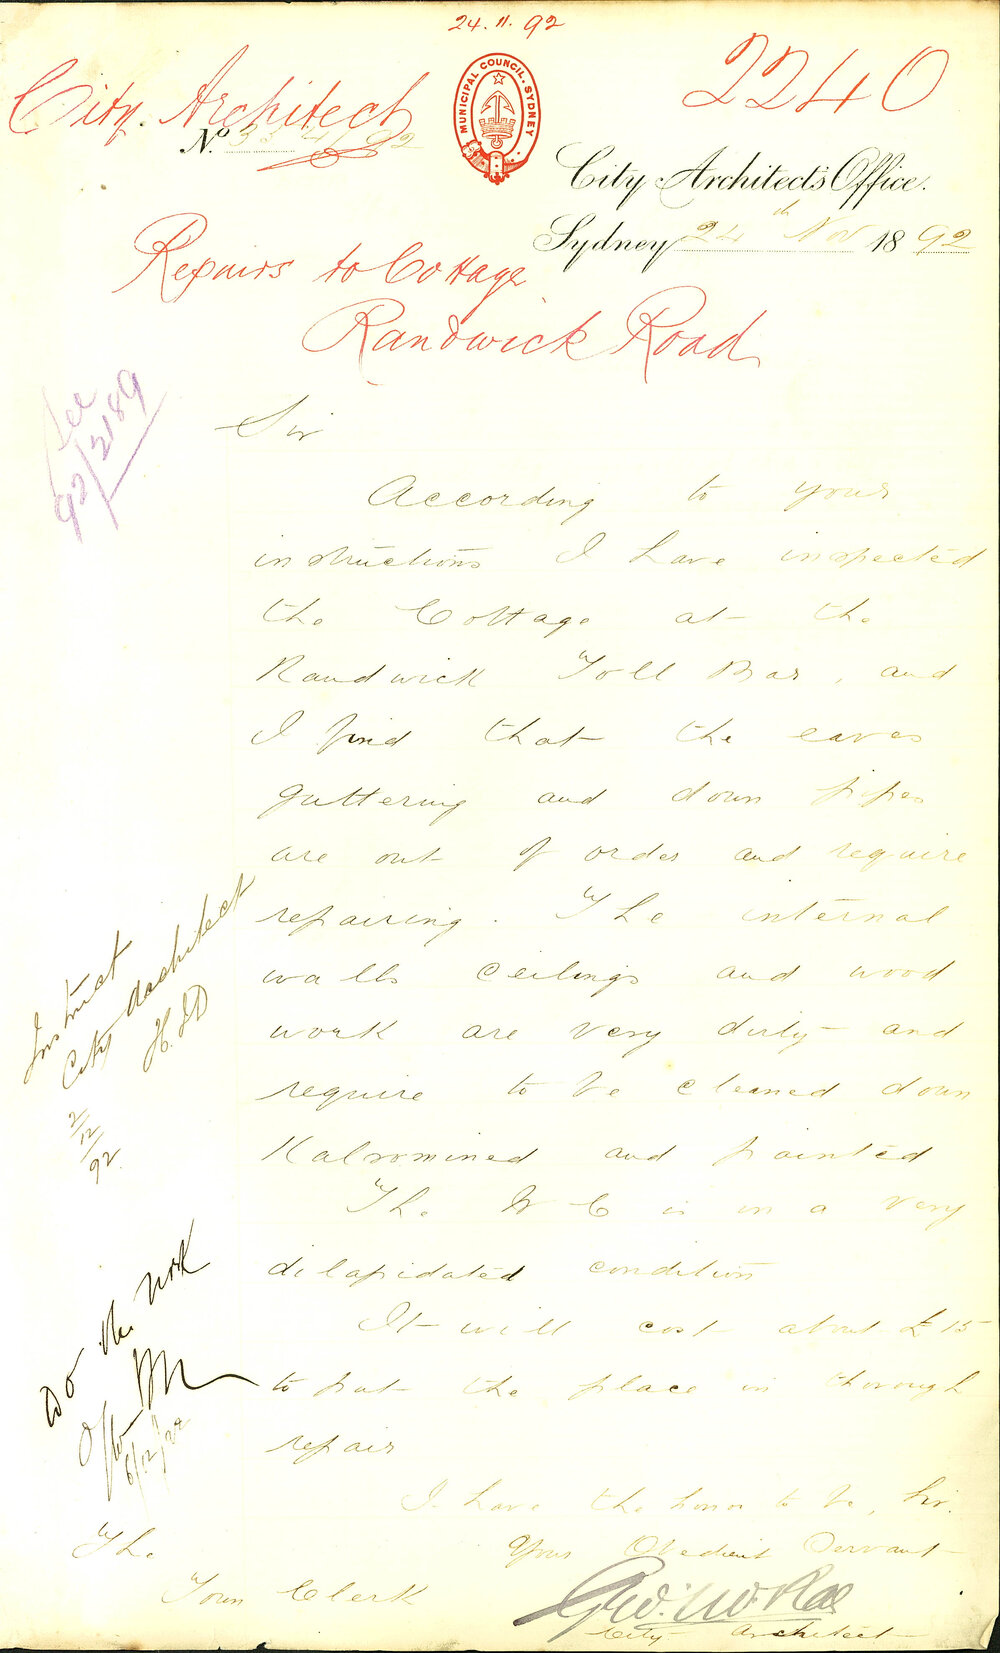 24.11.92
2240
City Architect
No.
MUNICIPAL COUNCIL. SYDNEY
City Architect's Office.
Sydney 24th Nov 1892
Repairs to Cottage
Randwick Road
See
92/2189
Sir
According to your
instructions I have inspected
the Cottage at the
Randwick Toll Bar, and
I find that the eaves
guttering and down pipes
are out of order and require
repairing. The internal
walls ceilings and wood
work are very dirty and
require to be cleaned down
Kalsomined and painted
The W C is in a very
dilapidated condition
It will cost about £15
to put the place in thorough
repair
I have the honor to be, Sir.
Your Obedient Servant
Geo. McRae
City Architect
The
Town Clerk
Instruct
City Architect
2/12/92
Do the work
6/12/92